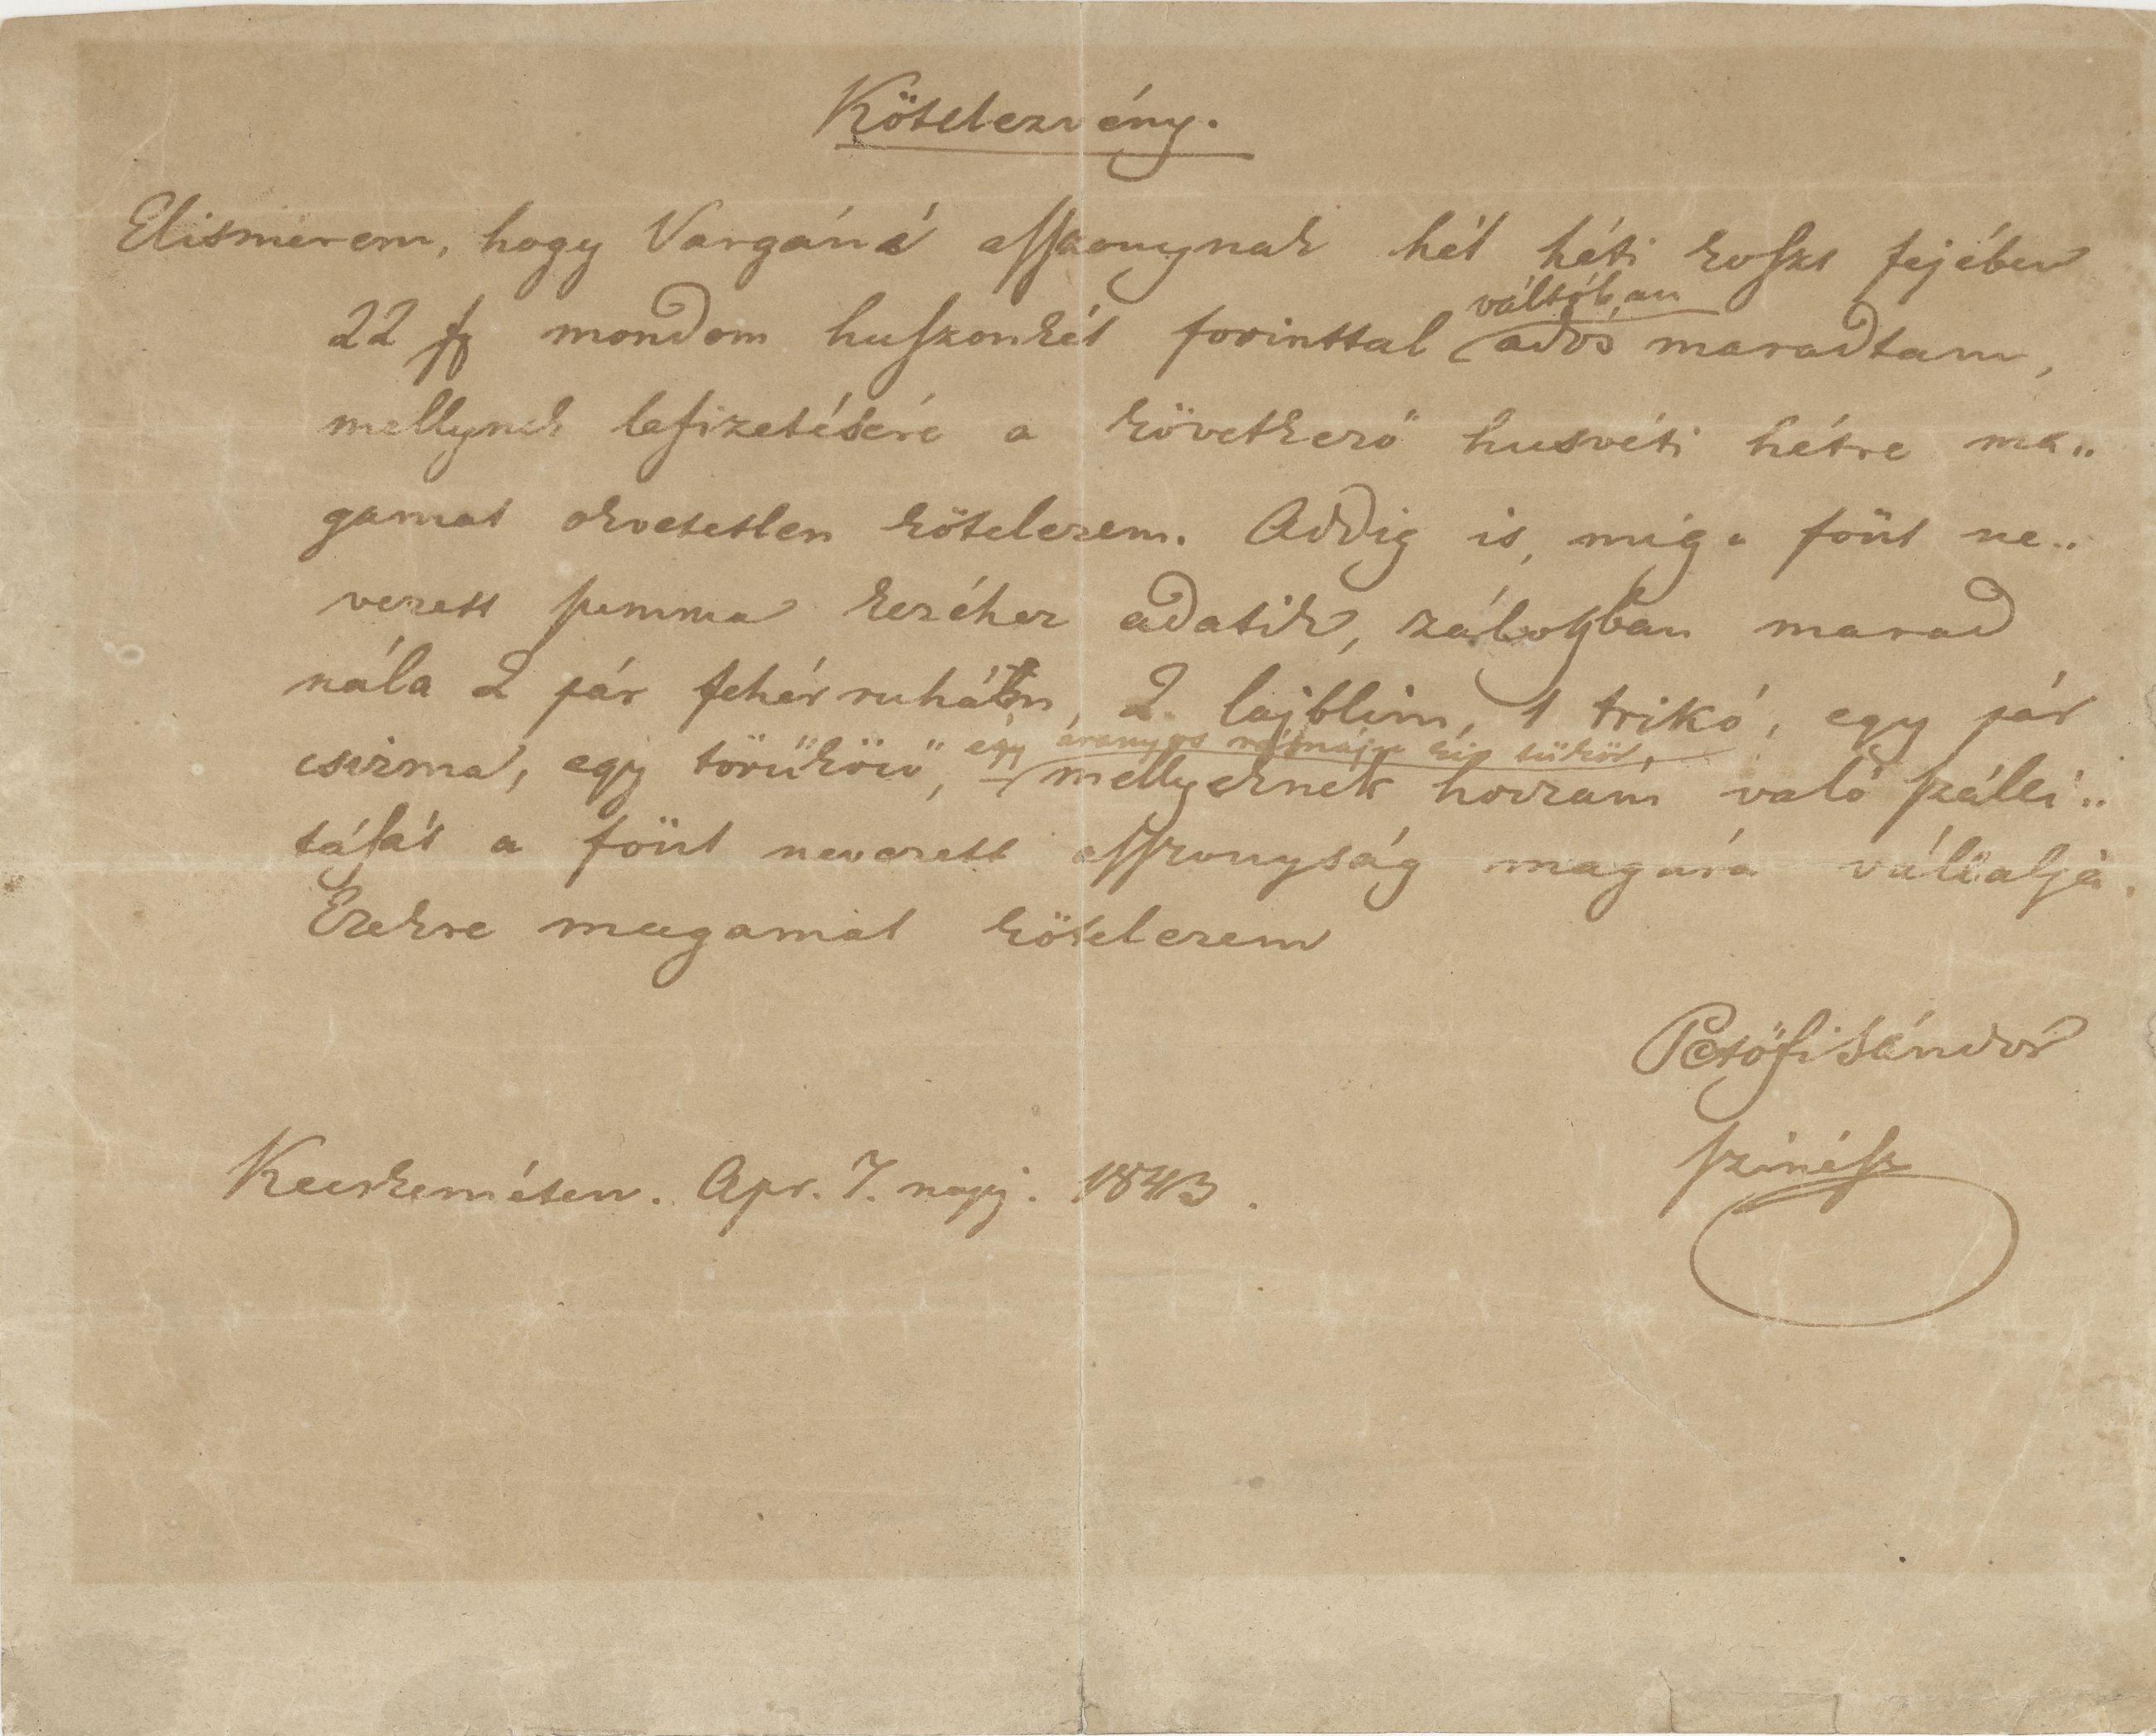 Kötelezvény.
Elismerem, hogy Vargáné asszonynak hét héti koszt fejében
váltóban
22 f mondom huszonkét forinttal adós maradtam,
mellynek lefizetésére a következő husvéti hétre ma..
gamat okvetetlen kötelezem. Addig is, mig a fönt ne..
vezett summa kezéhez adatik, zálogban marad
nála 2 pár fehér ruhám, 2 lajblim, 1 trikó, egy pár
egy aranyos rámáju kis tükör,
csizma, egy törükövő, mellyeknek hozzám való szálli..
tását a fönt nevezett asszonyság magára vállalja.
Ezekre magamat kötelezem
Petőfi Sándor
szinész
Kecskeméten. Apr. 7. napj. 1843.